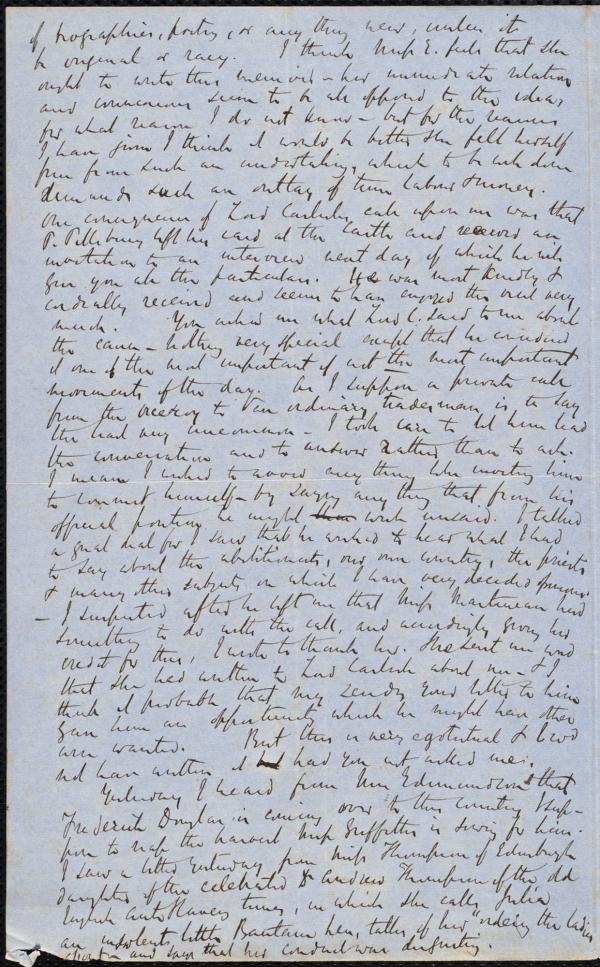 of biographies, poetry, or any thing new, unless it
be original or racy. I think Miss E. feels that she
ought to write this memoir – her immediate relations
and connexions seem to be all opposed to the idea,
for what reason I do not know – but for the reasons
I have given I think it would be better she felt herself
free from such an undertaking, which to be well done
demands such an outlay of time labour & money.
One consequence of Lord Carlisle's call upon me was that
P. Pillsbury left his card at the Castle and received an
invitation to an interview next day of which he will
give you all the particulars. He was most kindly &
cordially received and seems to have enjoyed the visit very
much. You asked me what Lord C. said to me about
the cause – nothing very special except that he considered
it one of the most important if not the most important
movements of the day. As I suppose a private call
from the viceroy to an ordinary tradesman is to say
the least very uncommon – I took care to let him lead
the conversation and to answer rather than to ask.
I mean I wished to avoid any thing like inviting him
to commit himself – by saying any thing that from his
official position he might wish unsaid. I talked
a great deal for I saw that he wished to hear what I had
to say about the abolitionists, our own country, the priests
& many other subjects on which I have very decided opinions
– I suspected after he left me that Miss Martineau had
something to do with the call, and accordingly giving her
credit for this, I wrote to thank her. She sent me word
that she had written to Lord Carlisle about me – & I
think it probable that my sending your letter to him
gave him an opportunity which he might have other
wise wanted. But this is very egotistical & I wod
not have written it had you not asked me.
Yesterday I heard from Mrs Edmundson that
Frederick Douglas is coming over to this country I sup-
pose to reap the harvest Miss Griffiths is sowing for him.
I saw a letter yesterday from Miss Thompson of Edinburgh
daughter of the celebrated Dr Andrew Thompson of the old
English Anti Slavery times, in which she calls Julia
an insolent little Bantam hen, talks of her "ordering the ladies
about" and says that her conduct was disgusting.